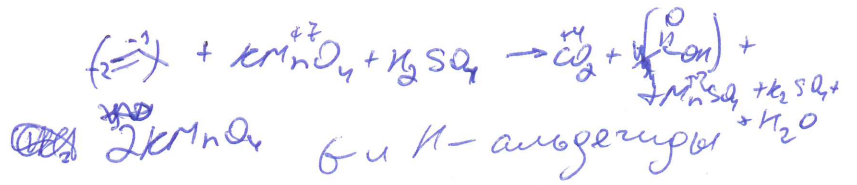 (-2 = -1) + KMn⁺⁷O₄ + H₂SO₄ → C⁺⁴O₂ + (O OH) +
+ Mn⁺²SO₄ + K₂SO₄ +
+ H₂O
2KMnO₄ 6 и H - альдегиды